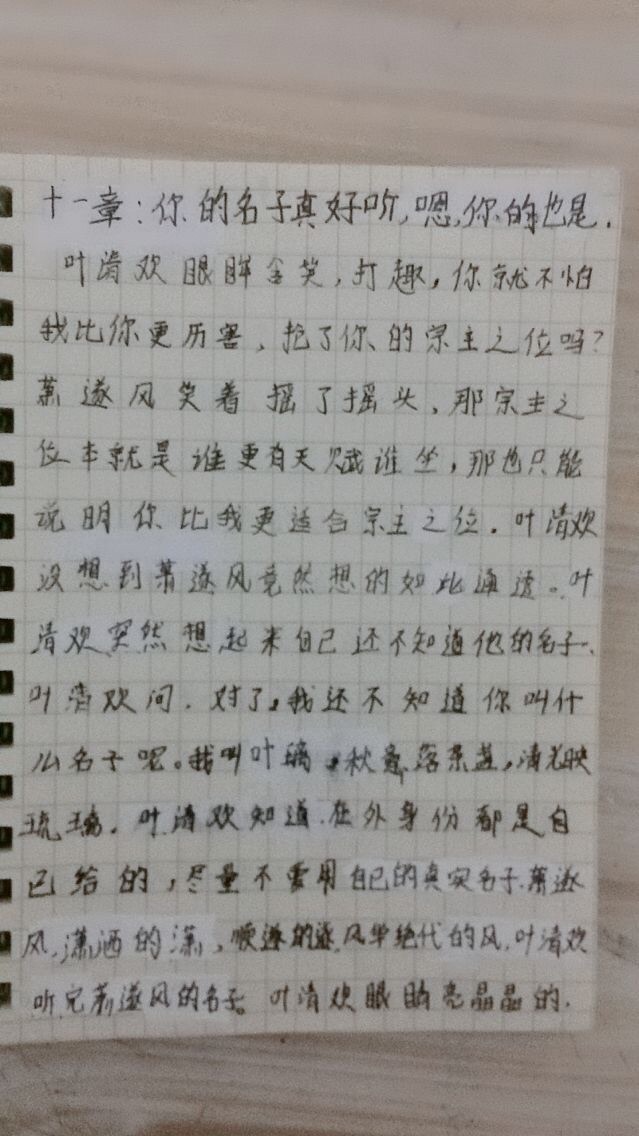 十一章：你的名子真好听，嗯，你的也是．
叶清欢眼眸含笑，打趣，你就不怕
我比你更历害，抢了你的宗主之位吗？
萧遂风笑着摇了摇头，那宗主之
位本就是谁更有天赋谁坐，那也只能
说明你比我更适合宗主之位．叶清欢
没想到萧遂风竟然想的如此通透。叶
清欢突然想起来自己还不知道他的名子．
叶清欢问．对了，我还不知道你叫什
么名子呢。我叫叶璃，秋意落，清光映
琉璃．叶清欢知道．在外身份都是自
己给的，尽量不要用自己的真实名子．萧遂
风，潇洒的潇，顺遂的遂，风华绝代的风，叶清欢
听完萧遂风的名子。叶清欢眼睛亮晶晶的．